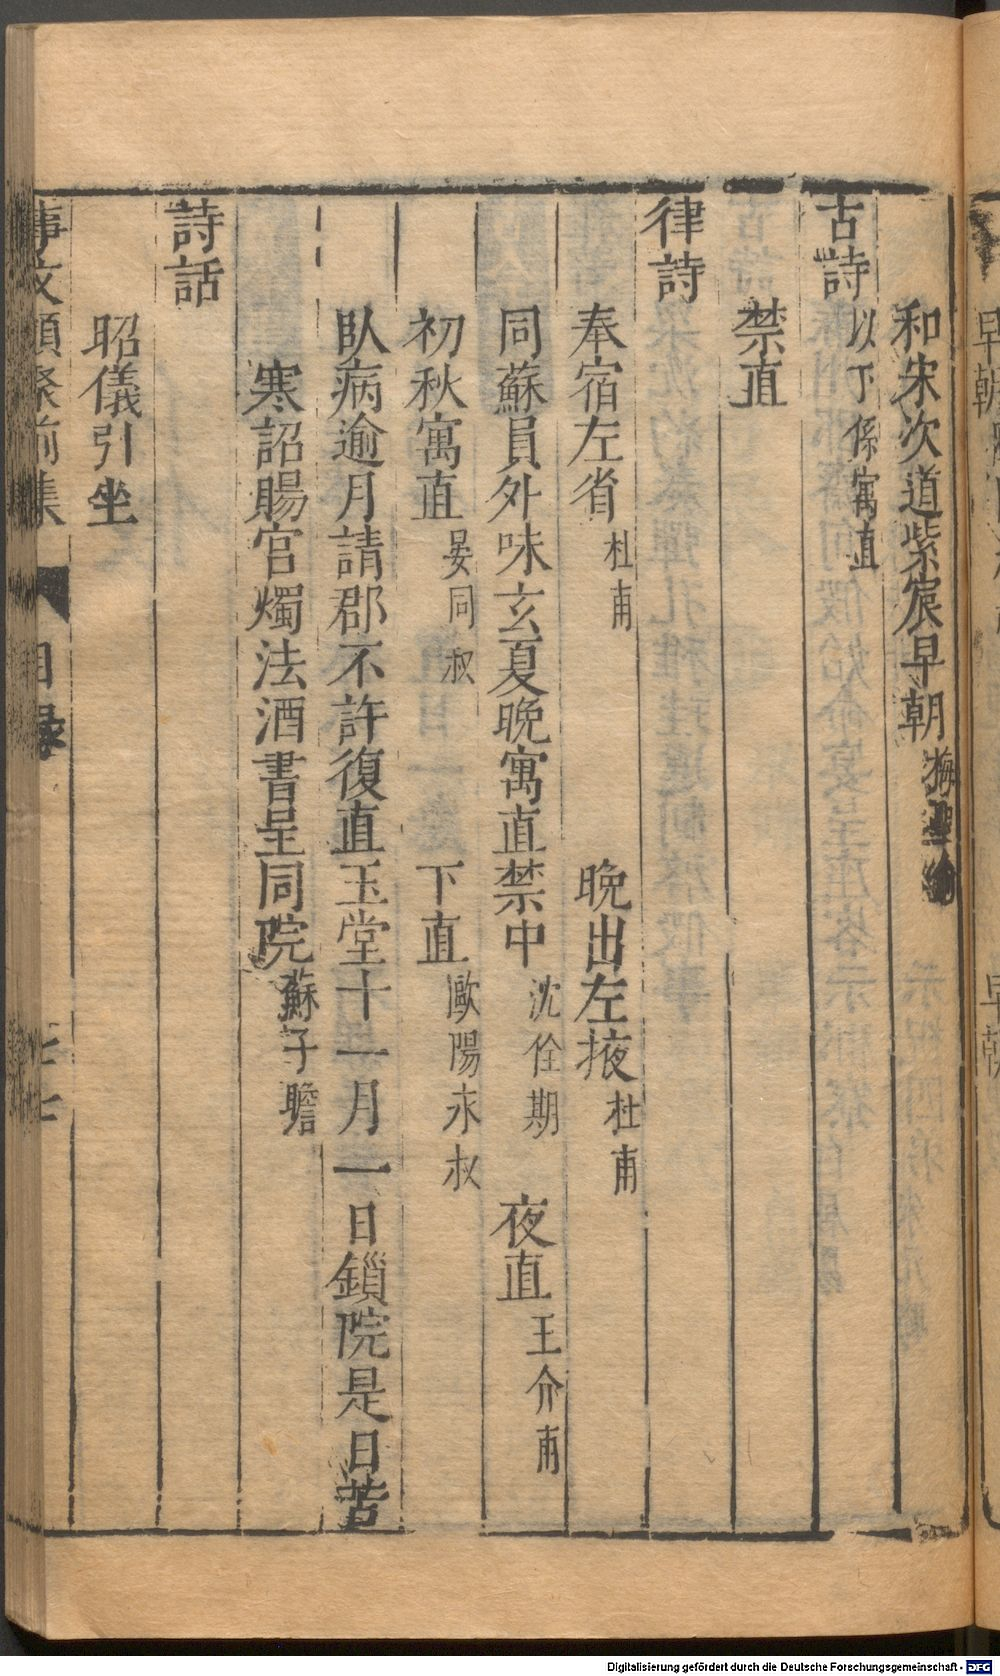 和宋次道紫宸早朝 梅聖俞
古詩 以下係寓直
禁直
律詩
奉宿左省 杜甫 晚出左掖 杜甫
同蘇員外味玄夏晚寓直禁中 沈佺期 夜直 王介甫
初秋寓直 晏同叔 下直 歐陽永叔
臥病逾月請郡不許復直玉堂十一月一日鎖院是日苦
寒詔賜官燭法酒書呈同院 蘇子瞻
詩話
昭儀引坐
事文類聚前集 目錄
Digitalisierung gefördert durch die Deutsche Forschungsgemeinschaft - DFG